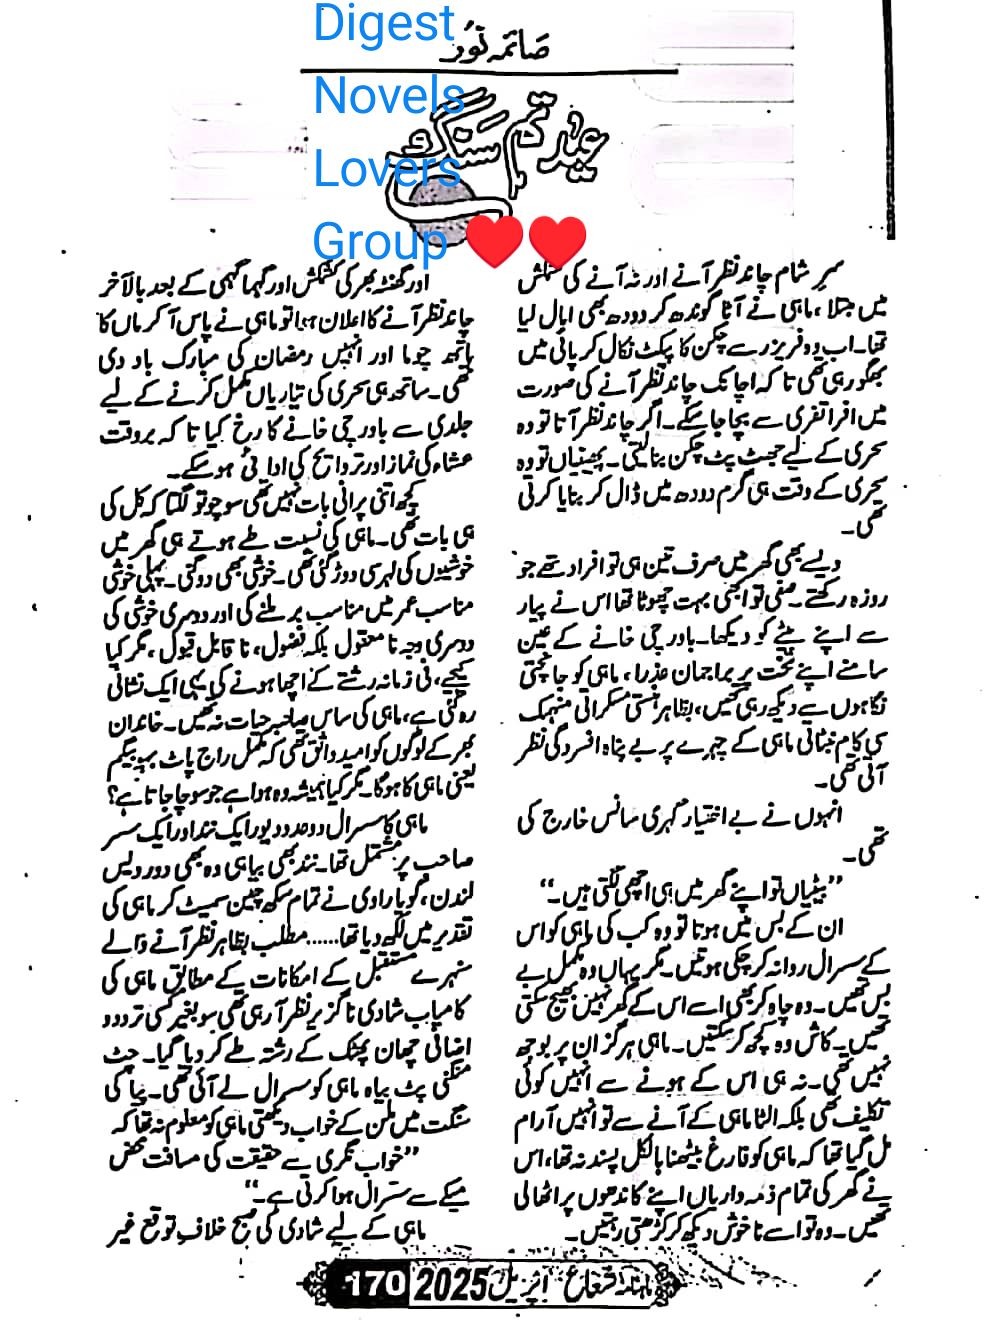 Digest
Novels
Lovers
Group ❤️❤️
صائمہ نور
عید تم سنگ
سرِ شام چاند نظر آنے اور نہ آنے کی کشمکش
میں مبتلا، ماہی نے آٹا گوندھ کر دودھ بھی ابال لیا
تھا۔ اب وہ فریزر سے چکن کا پیکٹ نکال کر پانی میں
بھگو رہی تھی تاکہ اچانک چاند نظر آنے کی صورت
میں افراتفری سے بچا جا سکے۔ اگر چاند نظر آتا تو وہ
سحری کے لیے جھٹ پٹ چکن بنا لیتی۔ پھینیاں تو وہ
سحری کے وقت ہی گرم دودھ میں ڈال کر بنایا کرتی
تھی۔
ویسے بھی گھر میں صرف تین ہی تو افراد تھے جو
روزہ رکھتے۔ صفی تو ابھی بہت چھوٹا تھا اس نے پیار
سے اپنے بیٹے کو دیکھا۔ باورچی خانے کے عین
سامنے اپنے تخت پر براجمان عذرا، ماہی کو جانچتی
نگاہوں سے دیکھ رہی تھیں، بظاہر ہنستی مسکراتی منہمک
سی کام نبٹاتی ماہی کے چہرے پر بے پناہ افسردگی نظر
آئی تھی۔
انہوں نے بے اختیار گہری سانس خارج کی
تھی۔
”بیٹیاں تو اپنے گھر میں ہی اچھی لگتی ہیں۔“
ان کے بس میں ہوتا تو وہ کب کی ماہی کو اس
کے سسرال روانہ کر چکی ہوتیں۔ مگر یہاں وہ مکمل بے
بس تھیں۔ وہ چاہ کر بھی اسے اس کے گھر نہیں بھیج سکتی
تھیں۔ کاش وہ کچھ کر سکتیں۔ ماہی ہرگز ان پر بوجھ
نہیں تھی۔ نہ ہی اس کے ہونے سے انہیں کوئی
تکلیف تھی بلکہ الٹا ماہی کے آنے سے تو انہیں آرام
مل گیا تھا کہ ماہی کو فارغ بیٹھنا بالکل پسند نہ تھا، اس
نے گھر کی تمام ذمہ داریاں اپنے کاندھوں پر اٹھا لی
تھیں۔ وہ تو اسے ناخوش دیکھ کر کڑھتی رہتیں۔
اور گھنٹہ بھر کی کشمکش اور گہما گہمی کے بعد بالآخر
چاند نظر آنے کا اعلان ہوا تو ماہی نے پاس آ کر ماں کا
ہاتھ چوما اور انہیں رمضان کی مبارک باد دی
تھی۔ ساتھ ہی سحری کی تیاریاں مکمل کرنے کے لیے
جلدی سے باورچی خانے کا رخ کیا تاکہ بروقت
عشاء کی نماز اور تراویح کی ادائی ہو سکے۔
کچھ اتنی پرانی بات نہیں تھی سوچو تو لگتا کہ کل کی
ہی بات تھی۔ ماہی کی نسبت طے ہوتے ہی گھر میں
خوشیوں کی لہر سی دوڑ گئی تھی۔ خوشی بھی دوگنی۔ پہلی خوشی
مناسب عمر میں مناسب بر ملنے کی اور دوسری خوشی کی
دوسری وجہ نامعقول بلکہ فضول، ناقابل قبول، مگر کیا
کیجیے، فی زمانہ رشتے کے اچھا ہونے کی یہی ایک نشانی
رہ گئی ہے، ماہی کی ساس صاحبہ حیات نہ تھیں۔ خاندان
بھر کے لوگوں کو امید واثق تھی کہ مکمل راج پاٹ بہو بیگم
یعنی ماہی کا ہوگا۔ مگر کیا ہمیشہ وہ ہوا ہے جو سوچا جاتا ہے؟
ماہی کا سسرال دو عدد دیور ایک نند اور ایک سسر
صاحب پر مشتمل تھا۔ نند بھی بیاہی وہ بھی دور دیس
لندن، گویا راوی نے تمام سکھ چین سمیٹ کر ماہی کی
تقدیر میں لکھ دیا تھا...... مطلب بظاہر نظر آنے والے
سنہرے مستقبل کے امکانات کے مطابق ماہی کی
کامیاب شادی ناگزیر نظر آ رہی تھی سو بغیر کسی تردد و
اضافی چھان پھٹک کے رشتہ طے کر دیا گیا۔ چٹ
منگنی پٹ بیاہ ماہی کو سسرال لے آئی تھی۔ پیا کی
سنگت میں ملن کے خواب دیکھتی ماہی کو معلوم نہ تھا کہ
”خواب نگری سے حقیقت کی مسافت محض
میکے سے سسرال ہوا کرتی ہے۔“
ماہی کے لیے شادی کی صبح خلاف توقع غیر
ماہنامہ شعاع اپریل 2025 170